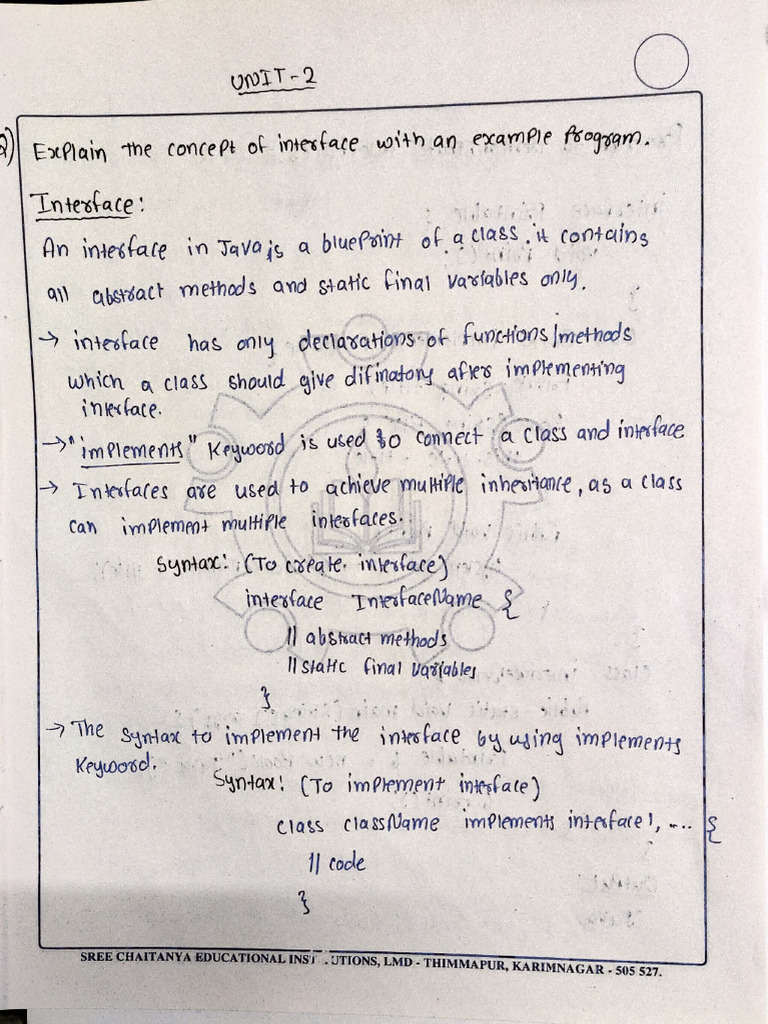 UNIT-2
2) Explain the concept of interface with an example Program.
Interface:
An interface in Java is a bluePrint of a class. it contains
all abstract methods and static final variables only.
→ interface has only declarations of functions/methods
which a class should give difinatory after implementing
interface.
→ "implements" Keyword is used to connect a class and interface
→ Interfaces are used to achieve multiple inheritance, as a class
can implement multiple interfaces.
Syntax: (To create interface)
interface InterfaceName {
// abstract methods
// static final variables
}
→ The syntax to implement the interface by using implements
Keyword.
Syntax: (To implement interface)
class className implements interface1, .... {
// code
}
SREE CHAITANYA EDUCATIONAL INSTITUTIONS, LMD - THIMMAPUR, KARIMNAGAR - 505 527.